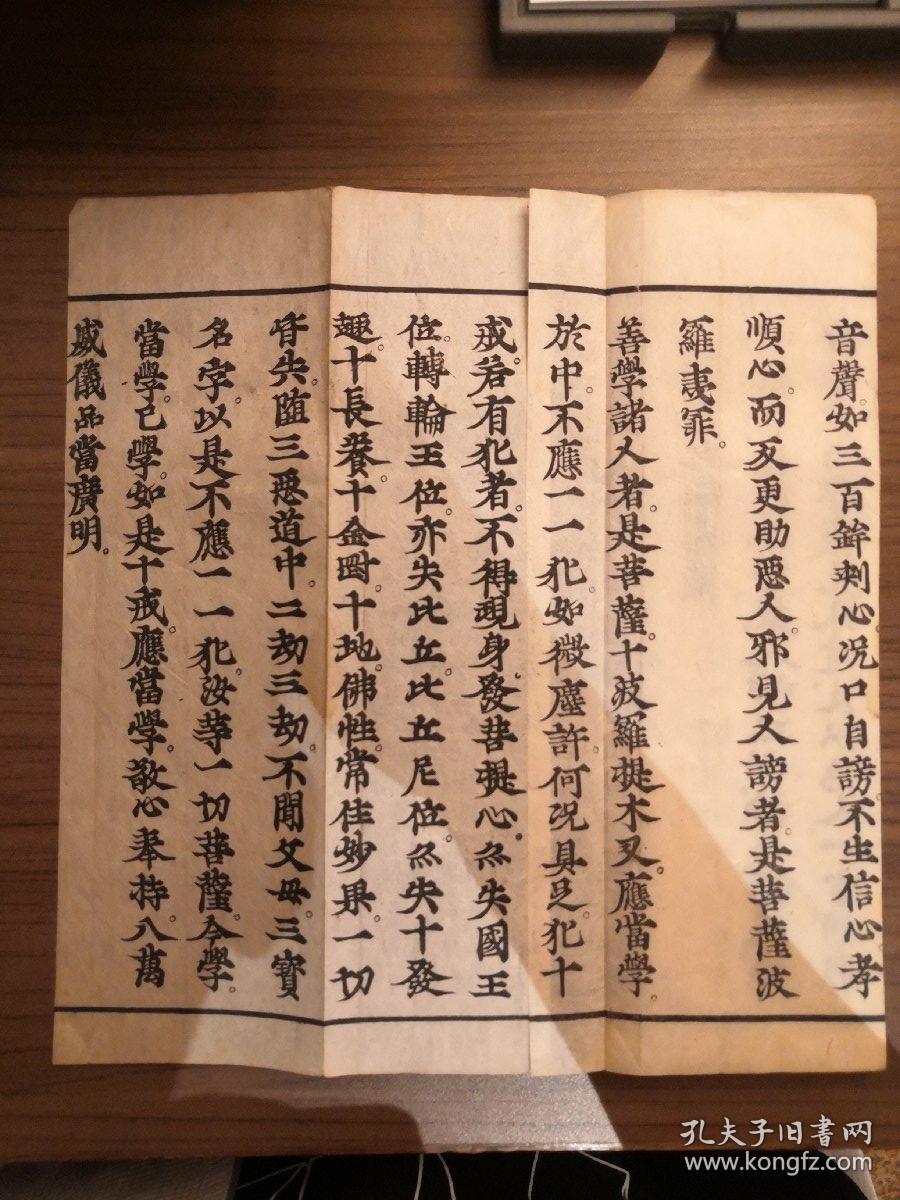 音聲。如三百鉾刺心。况口自謗。不生信心孝
順心。而反更助惡人。邪見人謗者。是菩薩波
羅夷罪。
善學諸人者。是菩薩。十波羅提木叉。應當學。
於中。不應一一犯。如微塵許。何况具足。犯十
戒。若有犯者。不得現身。發菩提心。亦失國王
位。轉輪王位。亦失比丘。比丘尼位。亦失十發
趣。十長養。十金剛。十地。佛性。常住妙果。一切
皆失。墮三惡道中。二劫三劫。不聞父母。三寶
名字。以是不應一一犯。汝等一切菩薩。今學。
當學。已學。如是十戒。應當學。敬心奉持。八萬
威儀品當廣明。
孔夫子旧書网
www.kongfz.com